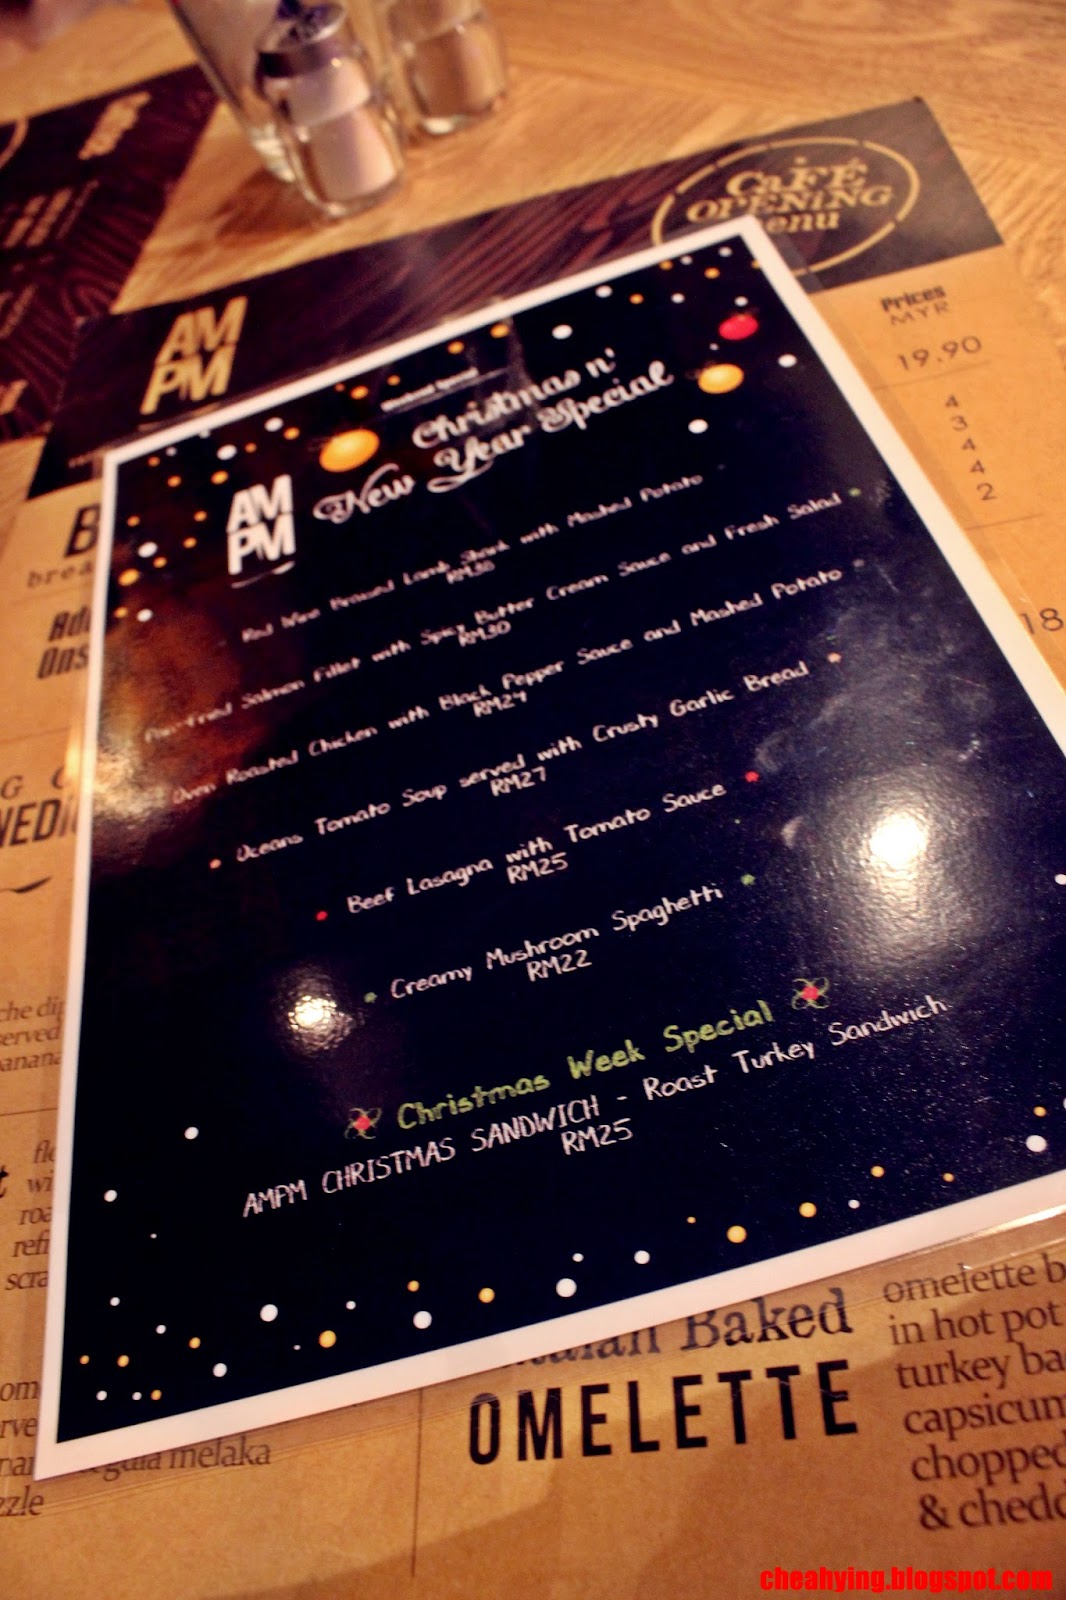 CaFÉ
OPENiNG
menu
AM
PM
Prices
MYR
19.90
4
3
4
4
2
18
Weekend Special
Christmas n'
New Year Special
AM
PM
Red Wine Braised Lamb Shank with Mashed Potato
RM38
Pan-fried Salmon Fillet with Spicy Butter Cream Sauce and Fresh Salad
RM30
Oven Roasted Chicken with Black Pepper Sauce and Mashed Potato
Oceans Tomato Soup served with Crusty Garlic Bread
RM27
Beef Lasagna with Tomato Sauce
RM25
Creamy Mushroom Spaghetti
RM22
Christmas Week Special
AMPM CHRISTMAS SANDWICH - Roast Turkey Sandwich
RM25
Baked
OMELETTE
omelette b
in hot pot
turkey ba
capsicum
chopped
& chedd
gula melaka
cheahying.blogspot.com